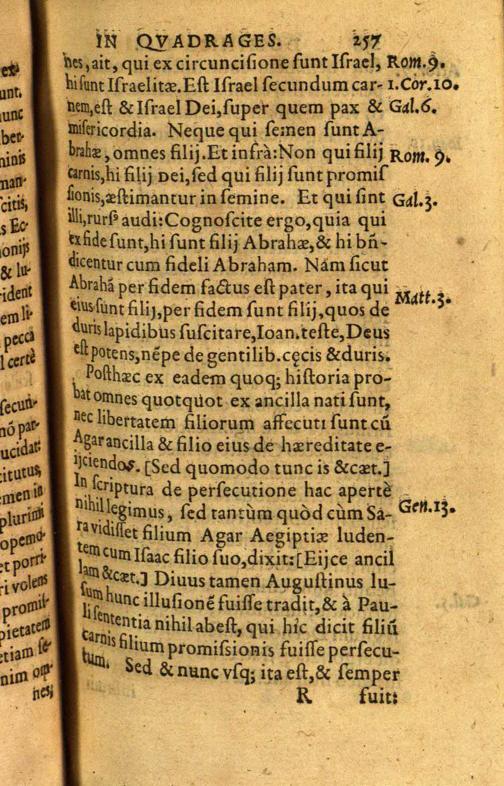 IN QVADRAGES. 257
nes, ait, qui ex circuncisione sunt Israel, Rom. 9.
hi sunt Israelitæ. Est Israel secundum car- 1. Cor. 10.
nem, est & Israel Dei, super quem pax & Gal. 6.
misericordia. Neque qui semen sunt A-
brahæ, omnes filij. Et infrà: Non qui filij Rom. 9.
carnis, hi filij Dei, sed qui filij sunt promis
sionis, æstimantur in semine. Et qui sint Gal. 3.
illi, rursꝰ audi: Cognoscite ergo, quia qui
ex fide sunt, hi sunt filij Abrahæ, & hi bñ-
dicentur cum fideli Abraham. Nam sicut
Abrahā per fidem factus est pater, ita qui
eius sunt filij, per fidem sunt filij, quos de Matt. 3.
duris lapidibus suscitare, Ioan. teste, Deus
est potens, nēpe de gentilib. cęcis & duris.
Posthæc ex eadem quoq; historia pro-
bat omnes quotquot ex ancilla nati sunt,
nec libertatem filiorum assecuti sunt cū
Agar ancilla & filio eius de hæreditate e-
ijciendos. [Sed quomodo tunc is &cæt.]
In scriptura de persecutione hac apertè
nihil legimus, sed tantùm quòd cùm Sa- Gen. 13.
ra vidisset filium Agar Aegiptiæ luden-
tem cum Isaac filio suo, dixit: [Eijce ancil
lam &cæt.] Diuus tamen Augustinus lu-
sum hunc illusionē fuisse tradit, & à Pau-
li sententia nihil abest, qui hic dicit filiū
carnis filium promissionis fuisse persecu-
tum. Sed & nunc vsq; ita est, & semper
R fuit: